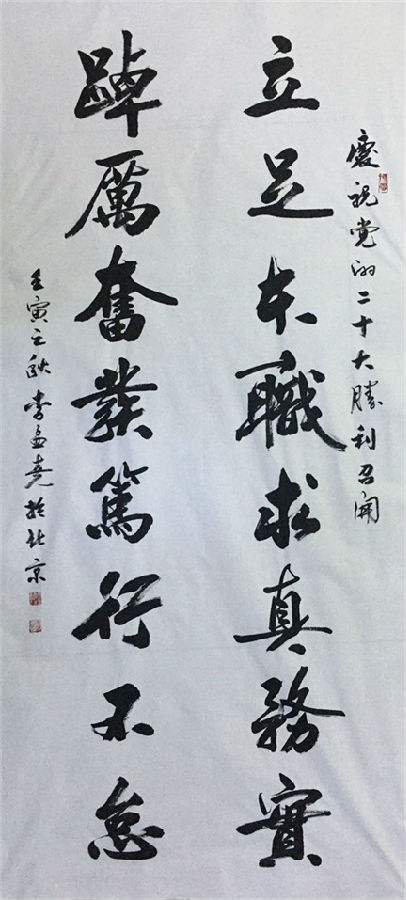 慶祝党的二十大勝利召開
立足本職求真務實
踔厲奮發篤行不怠
壬寅之秋李孟堯於北京